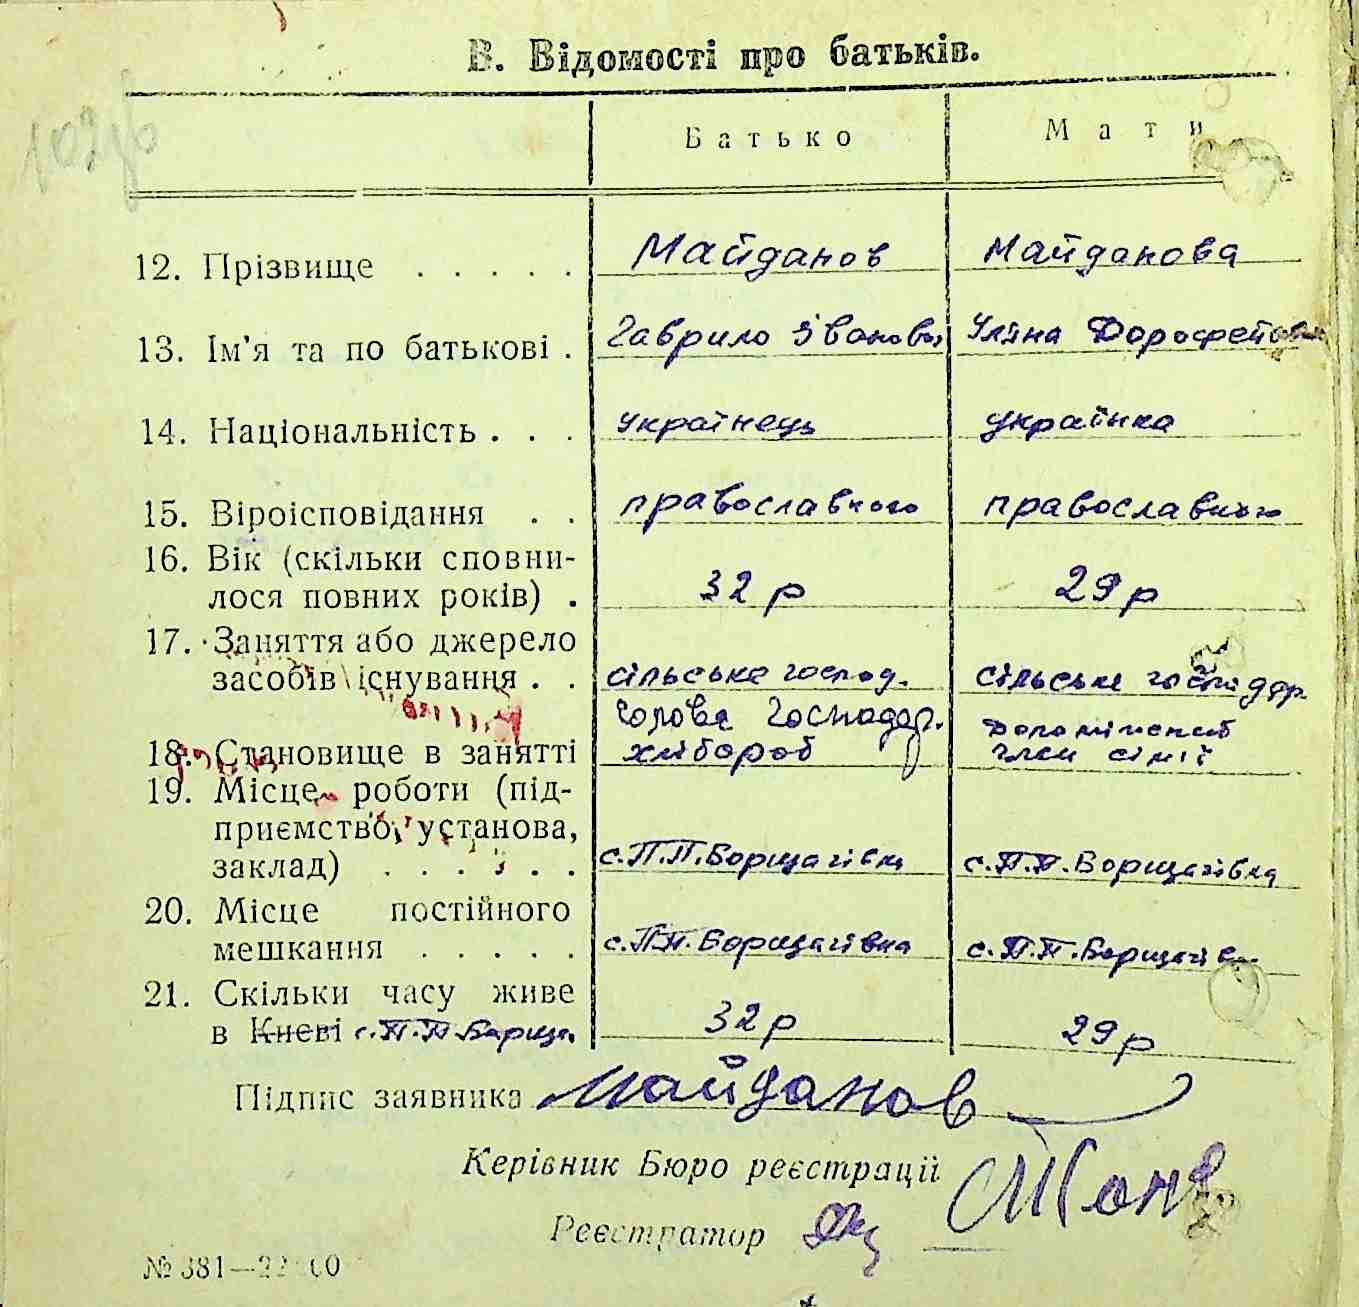 В. Відомості про батьків.
Батько Мати
12. Прізвище . . . . . Майданов Майданова
13. Ім'я та по батькові . Гаврило Іванов. Уляна Дорофеївна
14. Національність . . . Українець українка
15. Віроісповідання . . православного православного
16. Вік (скільки сповни-
лося повних років) . 32 р 29 р
17. Заняття або джерело
засобів існування . . сільське господ. сільське господар.
голова господар. допоміжний
18. Становище в занятті хлібороб член сімії
19. Місце роботи (під-
приємство, установа,
заклад) . . . . . . с.П.П.Борщагівка с.П.П.Борщагівка
20. Місце постійного
мешкання . . . . . с.П.П.Борщагівка с.П.П.Борщагівка
21. Скільки часу живе
в Києві с.П.П.Борща. 32 р 29 р
Підпис заявника Майданов
Керівник Бюро реєстрації
Реєстратор
№ 381—